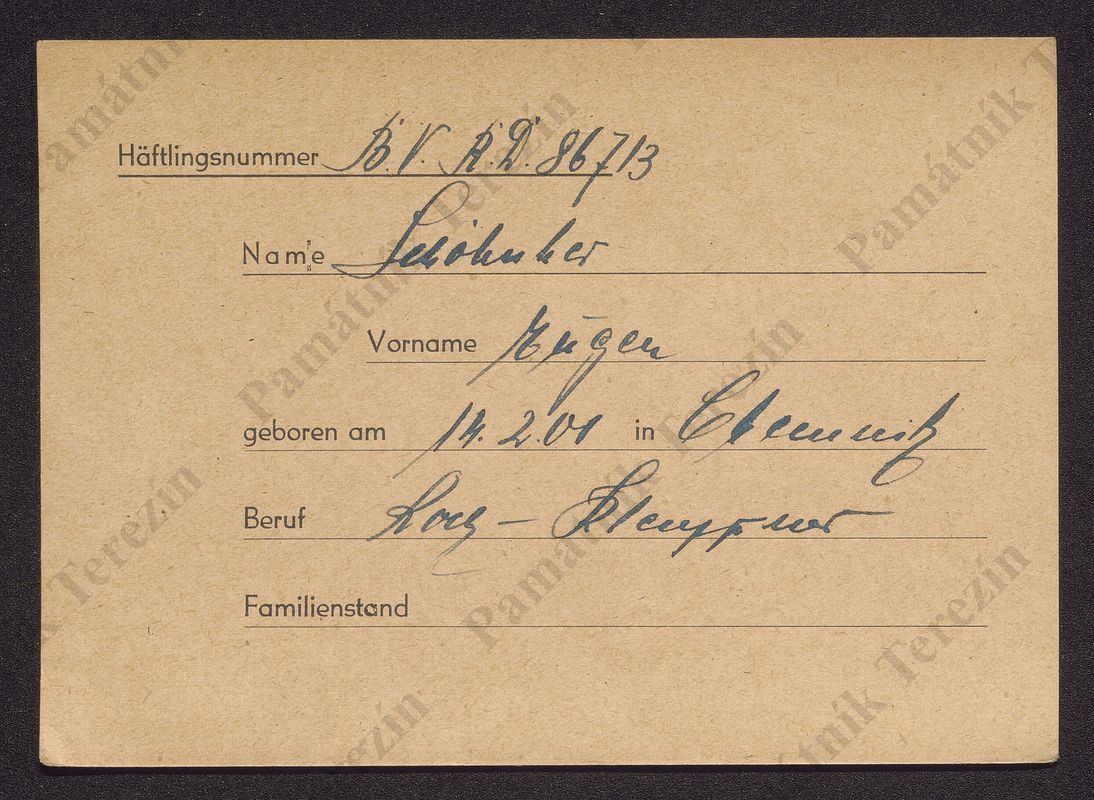 Häftlingsnummer B.V. R.D. 86713
Name
Vorname Eugen
geboren am 14.2.00 in Chemnitz
Beruf Koch – Klempner
Familienstand
Památník Terezín